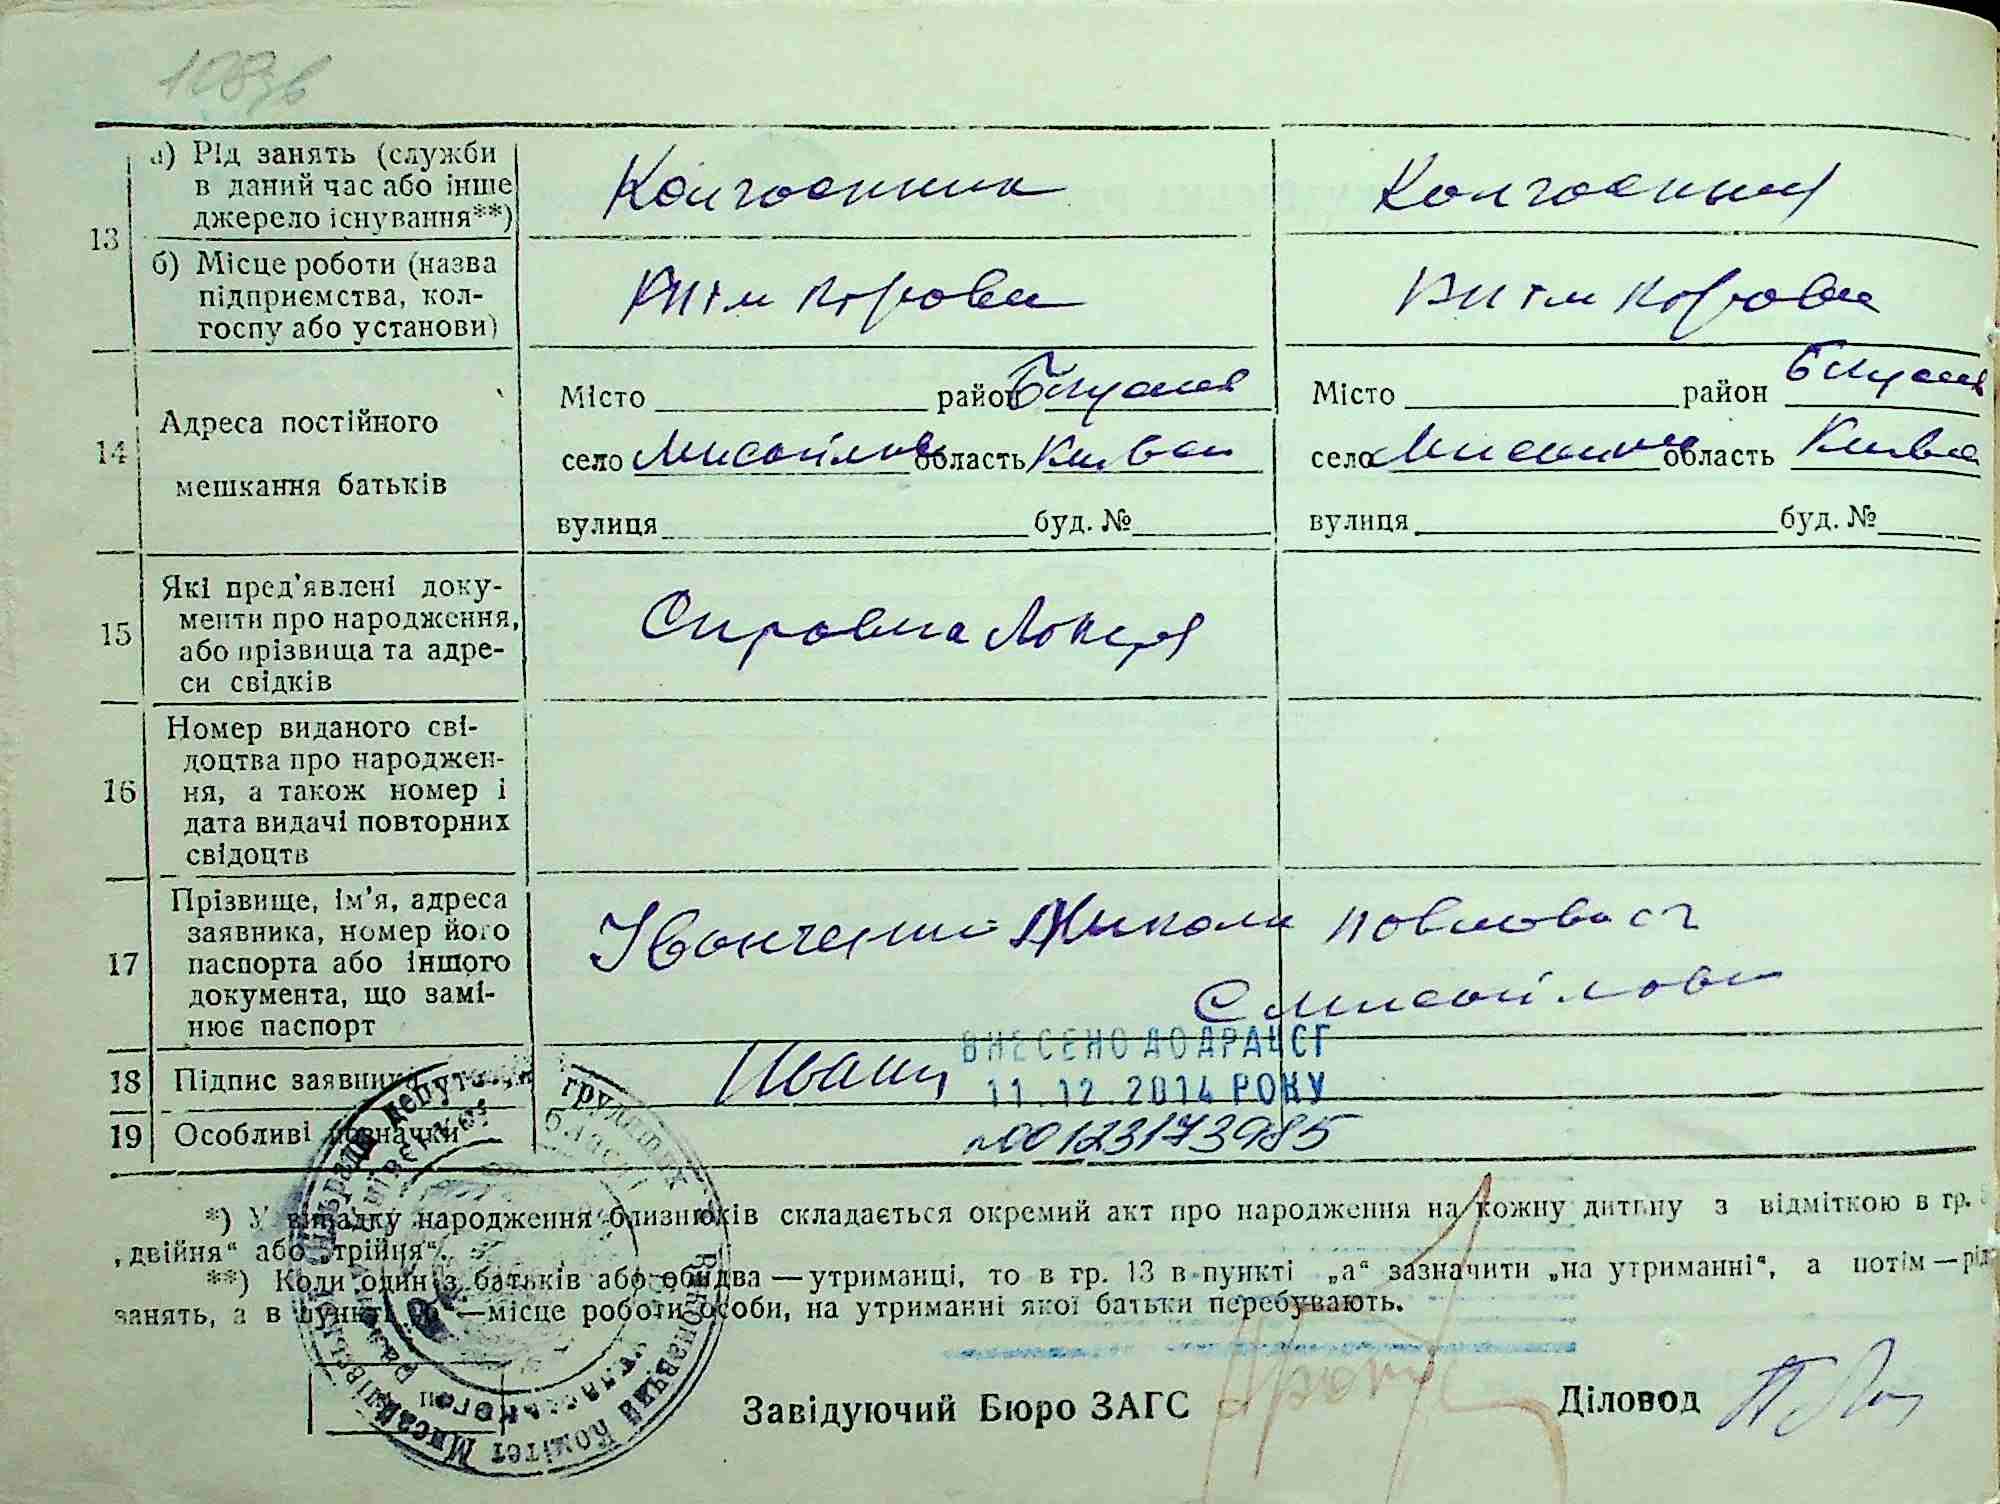 108зв
а) Рід занять (служби
в даний час або інше
джерело існування**)
Колгоспник
Колгоспниц
13
б) Місце роботи (назва
підприємства, кол-
госпу або установи)
14
Адреса постійного
мешкання батьків
Місто район
село Мисайлів область Київск
вулиця буд. №
Місто район
село область Київск
вулиця буд. №
15
Які пред'явлені доку-
менти про народження,
або прізвища та адре-
си свідків
Справка
16
Номер виданого сві-
доцтва про народжен-
ня, а також номер і
дата видачі повторних
свідоцтв
17
Прізвище, ім'я, адреса
заявника, номер його
паспорта або іншого
документа, що замі-
нює паспорт
Іванченко Микола Павлович
с Мисайловк
ВНЕСЕНО ДО ДРАЦСГ
11.12.2014 РОКУ
18 Підпис заявника
19 Особливі позначки
№00123173985
*) У випадку народження близнюків складається окремий акт про народження на кожну дитину з відміткою в гр. 5
„двійня“ або „трійня“.
**) Коли один з батьків або обидва—утриманці, то в гр. 13 в пункті „а“ зазначити „на утриманні“, а потім—рід
занять, а в пункті —місце роботи особи, на утриманні якої батьки перебувають.
Завідуючий Бюро ЗАГС
Діловод